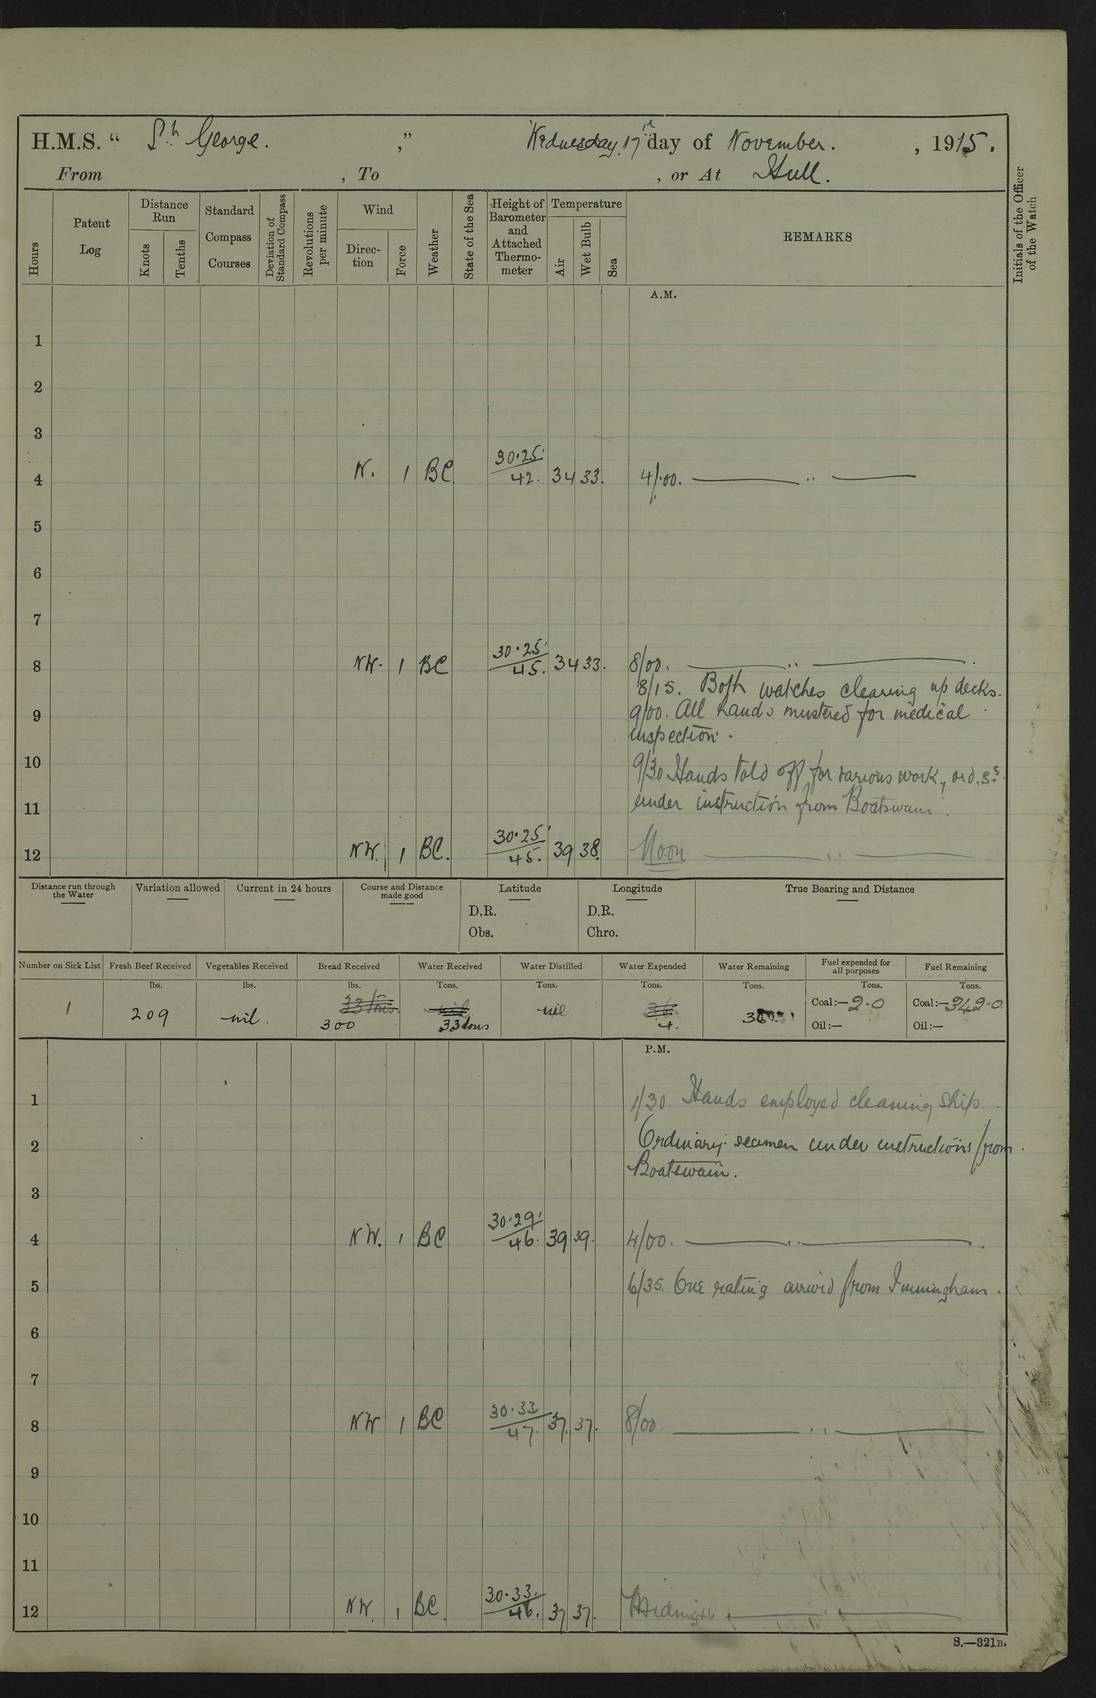 H.M.S. “ St George. ” Wednesday 17th day of November. , 1915.
From , To , or At Hull.
Hours
Patent Log
Distance Run
Knots
Tenths
Standard Compass Courses
Deviation of Standard Compass
Revolutions per minute
Wind
Direction
Force
Weather
State of the Sea
Height of Barometer and Attached Thermometer
Temperature
Air
Wet Bulb
Sea
REMARKS
Initials of the Officer of the Watch
A.M.
1
2
3
4 N. 1 BC 30.25 / 42. 34 33. 4/00. —— " ——
5
6
7
8 NW. 1 BC 30.25 / 45. 34 33. 8/00. —— " ——
8/15. Both watches clearing up decks.
9 9/00. All hands mustered for medical
inspection.
10 9/30 Hands told off for various work, ord. Ss.
11 under instruction from Boatswain.
12 NW. 1 BC. 30.25 / 45. 39 38. Noon —— " ——
Distance run through the Water
Variation allowed
Current in 24 hours
Course and Distance made good
Latitude
D.R.
Obs.
Longitude
D.R.
Chro.
True Bearing and Distance
Number on Sick List
1
Fresh Beef Received
lbs.
209
Vegetables Received
lbs.
nil.
Bread Received
lbs.
300
Water Received
Tons.
33 tons
Water Distilled
Tons.
nil
Water Expended
Tons.
4.
Water Remaining
Tons.
Fuel expended for all purposes
Tons.
Coal:— 2.0
Oil:—
Fuel Remaining
Tons.
Coal:— 342.0
Oil:—
P.M.
1 1/30. Hands employed cleaning ship.
2 Ordinary seamen under instructions from
Boatswain.
3
4 NW. 1 BC 30.29 / 46. 39 39. 4/00. —— " ——
5 6/35. One rating arrived from Immingham.
6
7
8 NW 1 BC 30.33 / 47. 37. 37. 8/00. —— " ——
9
10
11
12 NW. 1 BC. 30.33. / 46. 37 37. Midnight —— " ——
S.—321B.